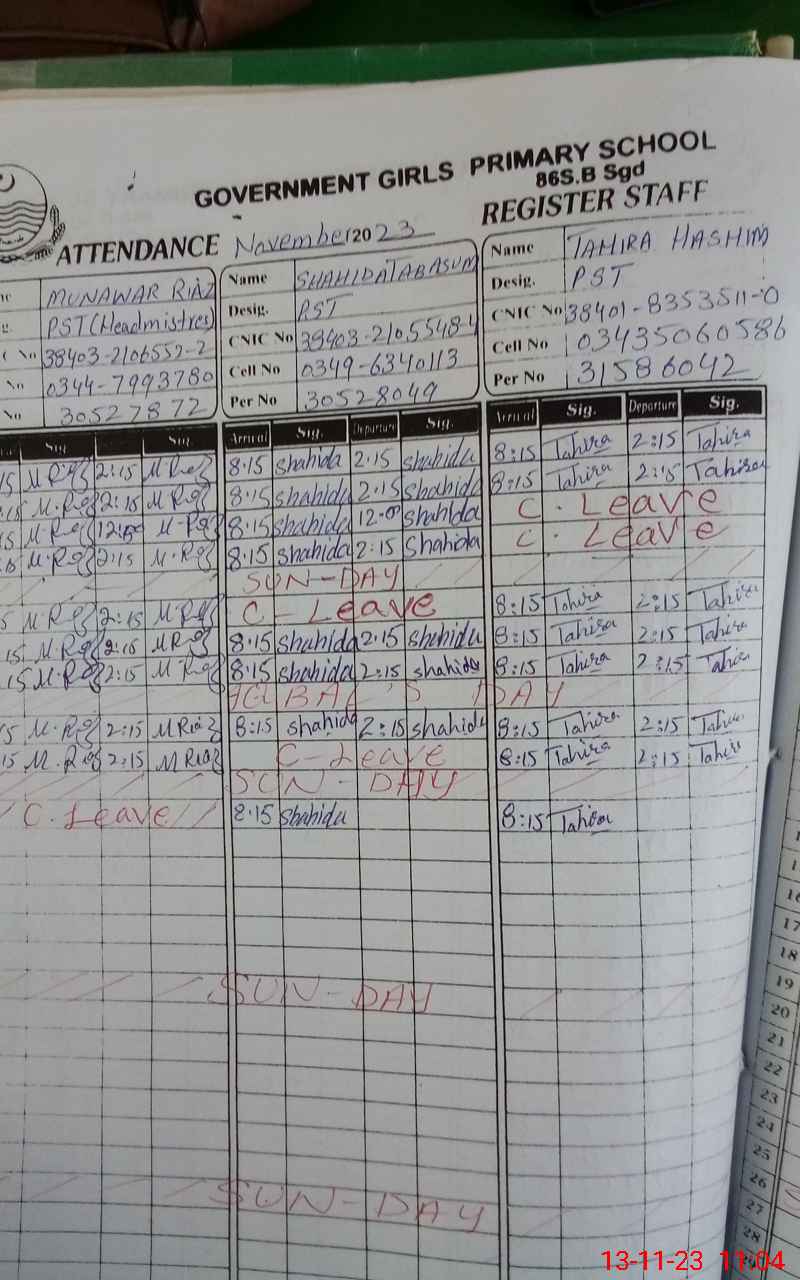 GOVERNMENT GIRLS PRIMARY SCHOOL
86S.B Sgd
ATTENDANCE November 2023 REGISTER STAFF
MUNAWAR RIAZ Name SHAHIDATABASUM Name TAHIRA HASHIM
PST(Headmistres) Desig. PST Desig. PST
38403-2106552-2 CNIC No 38403-2105548-4 CNIC No 38401-8353511-0
0344-7993780 Cell No 0349-6340113 Cell No 03435060586
30527872 Per No 30528049 Per No 31586042
Sig. Sig. Arrival Sig. Departure Sig. Arrival Sig. Departure Sig.
15 M Riaz 2:15 M Riaz 8·15 shahida 2·15 shahida 8:15 Tahira 2:15 Tahira
:15 M·Riaz 2:15 M Riaz 8·15 shahida 2·15 shahida 8:15 Tahira 2:15 Tahira
15 M·Riaz 12:00 M·Riaz 8·15 shahida 12·0 shahida C. Leave
M·Riaz 2:15 M·Riaz 8·15 shahida 2:15 shahida C. Leave
SUN-DAY
5 M·Riaz 2:15 M·Riaz C-Leave 8:15 Tahira 2:15 Tahira
15 M·Riaz 2:15 M Riaz 8·15 shahida 2·15 shahida 8:15 Tahira 2:15 Tahira
15 M·Riaz 2:15 M·Riaz 8·15 shahida 2:15 shahida 8:15 Tahira 2:15 Tahira
IQBAL'S DAY
5 M·Riaz 2:15 M Riaz 8:15 shahida 2:15 shahida 8:15 Tahira 2:15 Tahira
15 M.Riaz 2:15 M Riaz C-Leave 8:15 Tahira 2:15 Tahira
SUN-DAY
C. Leave 8·15 shahida 8:15 Tahira
SUN-DAY
SUN-DAY
17
18
19
20
21
22
23
24
25
26
27
28
13-11-23 11:04